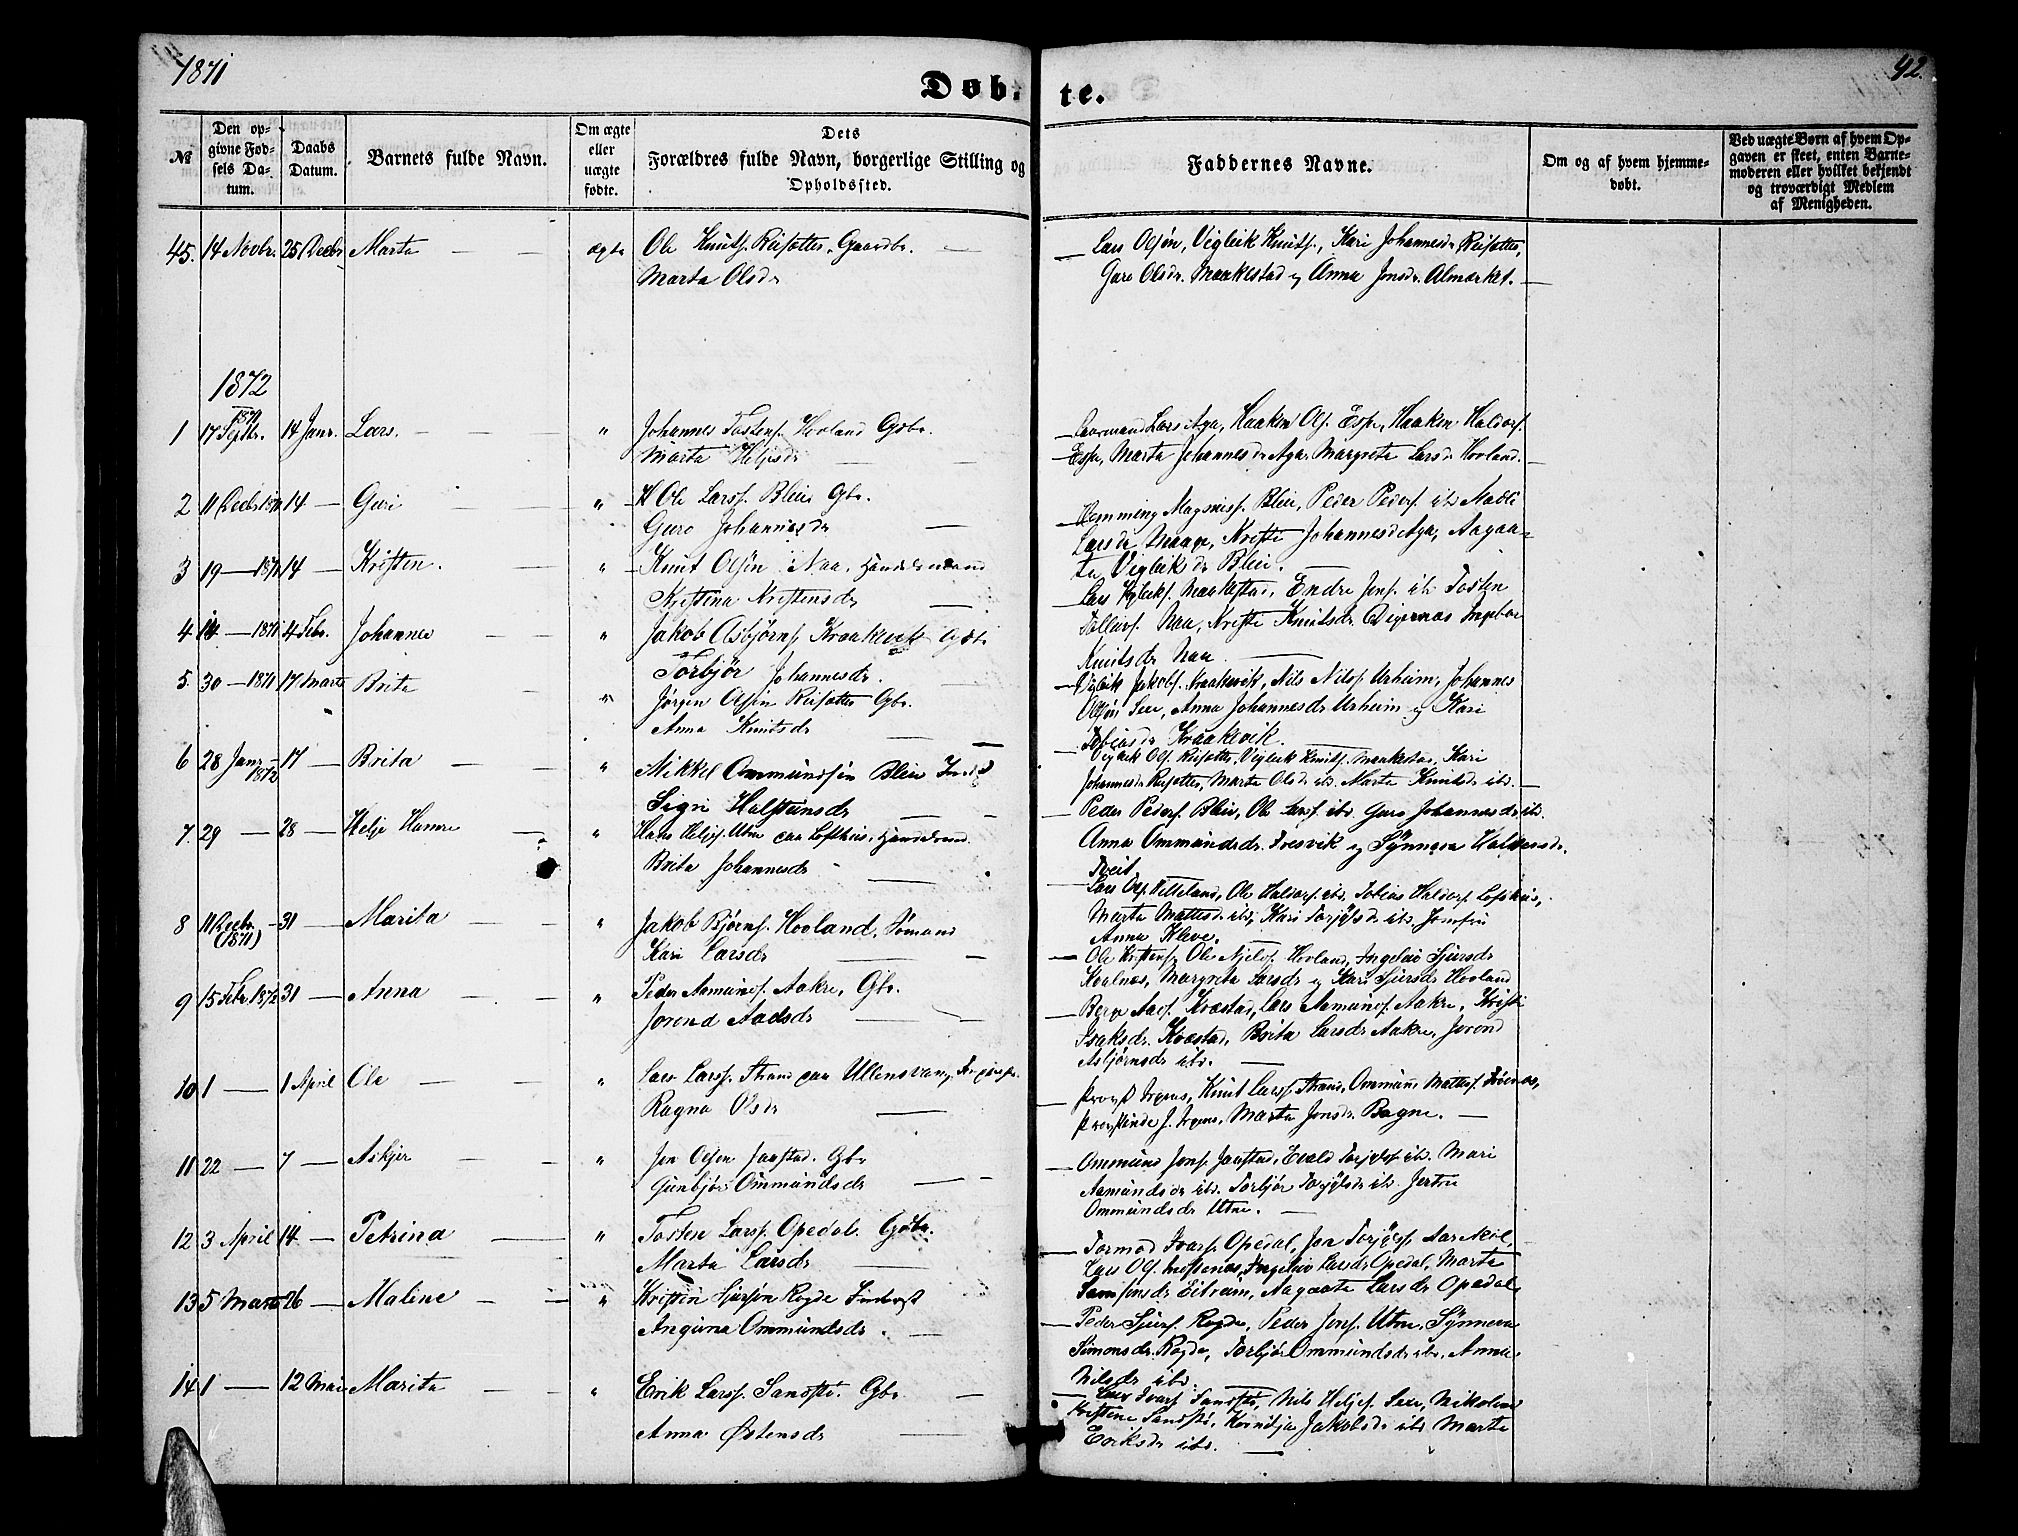 1871
Døbte.
92.
№
Den opgivne Fødsels Datum.
Daabs Datum.
Barnets fulde Navn.
Om ægte eller uægte fødte.
Dets Forældres fulde Navn, borgerlige Stilling og Opholdssted.
Faddernes Navne.
Om og af hvem hjemmedøbt.
Ved uægte Børn af hvem Opgaven er skeet, enten Barnemoderen eller hvilket bekjendt og troværdigt Medlem af Menigheden.
45. 14 Novbr. 25 Decbr Marta — — ægte Ole Knuts. Reisæter, Gaardbr. —
Marta Olsdr
Lars Olsøn, Vigleik Knuts., Kari Johannesdr Reisæter,
Guro Olsdr. Maakestad og Anna Jonsdr. Almerket. —
1872
1 17 Septbr. 1871 14 Janr. Lars. — — " Johannes Tostens. Hovland Gbr.
Marta Heljesdr — —
— Lars Aga, Haaken Ols. Espe, Haaken Haldors.
Espe, Marta Johannesdr Aga, Margreta Larsdr Hovland. —
2 11 Decbr 1871 14 — Guri — — " Ole Larss. Bleie Gbr.
Guro Johannesdr —
— Hemming Magnuss. Bleie, Peder Peders. ibd
Larsdr Maage, Kristi Johannesdr Aga, Aagaa-
ta Vigleiksdr Bleie. —
3 19 — 1871 14 — Kristen. — " Knut Olsøn Naa, Handelsmand
Kristina Kristensdr —
— Lars Vigleiks. Maakestad, Endre Jons. ibd Tosten
Naa, Kristi Knutsdr Digernes Ingebor
Knutsdr Naa —
4 14 — 1871 4 Febr. Johannes — — " Jakob Asbjørns. Kraakevik Gbr
Torbjør Johannesdr. —
— Vigleik Jakobs. Kraakevik, Nils Nilss. Urheim, Johannes
Olsøn Sexe, Anna Johannesdr Urheim og Kari
Kraakevik.
5. 30 — 1871 17 Marts Brita — " Jørgen Olsøn Reisæter Gbr.
Anna Knutsdr —
— Vigleik Ols. Reisæter, Vigleik Knuts. Maakestad, Kari
Johannesdr Reisæter, Marta Olsdr ibd. Marta Knutsdr ibd. —
6 28 Janr 1872 17 — Brita — — " Mikkel Ommundsøn Bleie
Sigri Halstensdr — —
— Peder Peders. Bleie, Ole Lars. ibd. Guro Johannesdr ibd.
Anna Ommundsdr. Tresvik og Synneva Haldorsdr.
7. 29 — 28 — Helje Hamre — " Hans Heljes. Utne paa Lofthus, Handelsmd.
Brita Johannesdr —
— Lars Ols. Helleland, Ole Haldors. ibd. Tobias Haldors. Lofthus,
Marta ibd, Kari ibd Jomfru
Anna Kleve. —
8 11 Decbr (1871) — 31 — Marita — — " Jakob Bjørns. Hovland, Sømand
Kari Larsdr — —
— Ole Kristens, Ole Hovland, Sjursdr
Kvalnes, Margreta Larsdr og Kari Sjursdr Hovland
9 15 Febr. 1872 31 — Anna — — " Peder Aamunds. Aakre, Gbr.
Jorond Aadsdr — —
— Kvestad, Lars Aamunds. Aakre, Kristi
Isaksdr. Kvestad, Brita Larsdr Aakre, Jorond
Asbjørnsdr ibd. —
10 1 — 1 April Ole — — " Lars Larss. Strand paa Ullensvang,
Ragna Olsdr —
— Provst Irgens, Knut Larss. Strand, Ommund
Provstinde J. Irgens, Marta Jonsdr. Bagne. —
11 22 — 7 — Askjer — — " Jon Olsøn Jaastad. Gbr
Gunbjør Ommundsdr — —
— Ommund Jons. Jaastad, Evald ibd. Mari
Aamundsdr ibd. Torbjør ibd. Jertru
Ommundsdr Utne. —
12 3 April 14 — Petrina — " Tosten Larss. Opedal. Gbr.
Marta Larsdr —
— Tormod Ivars. Opedal, Jon
Lars Ols. Larsdr Opedal, Marta
Eitreim, Aagaata Larsdr Opedal
13 5 Marts 26 — Maline — — " Kristen Sjursøn Rogde
Ommundsdr. —
— Peder Sjurs. Rogde, Peder Jons. Utne, Synneva
Simonsdr. Rogde, Torbjør Ommundsdr ibd., Anna
Nilsdr ibd. —
14 1 — 12 Mai Marita — — " Erik Larss. Sandstø. Gbr —
Anna Østensdr —
— Lars Ivars Sandstø, Nils Heljes. Sexe, Nikolina
Kristine Sandstø, Jakobsdr ibd Marta
Eriksdr ibd. —